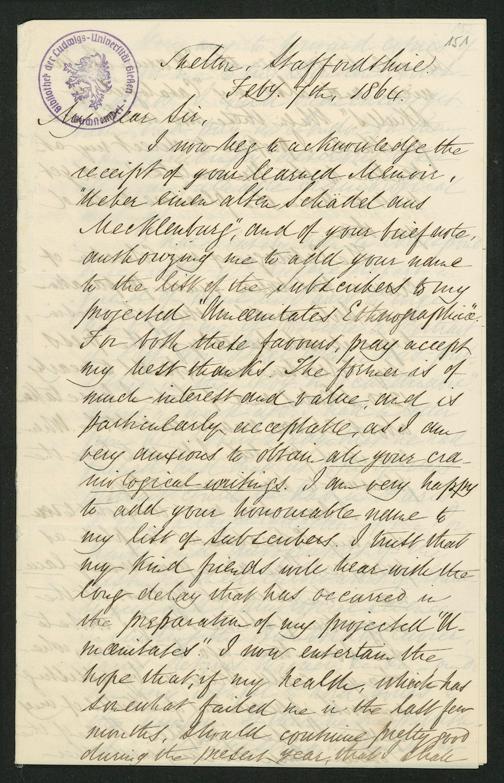 151
Bibliothek der Ludwigs-Universität Gießen
Shelton, Staffordshire.
Feby. 7th, 1864.
My dear Sir,
I now beg to acknowledge the
receipt of your learned Memoir,
"Ueber einen alten Schädel aus
Mecklenburg", and of your brief note,
authorizing me to add your name
to the list of the subscribers to my
projected "Amœnitates Ethnographicæ".
For both these favours, pray accept
my best thanks. The former is of
much interest and value, and is
particularly acceptable, as I am
very anxious to obtain all your cra-
niological writings. I am very happy
to add your honourable name to
my list of Subscribers. I trust that
my kind friends will bear with the
long delay that has occurred in
the preparation of my projected "A-
mœnitates". I now entertain the
hope that, if my health, which has
somewhat failed me in the last few
months, should continue pretty good
during the present year, that I shall